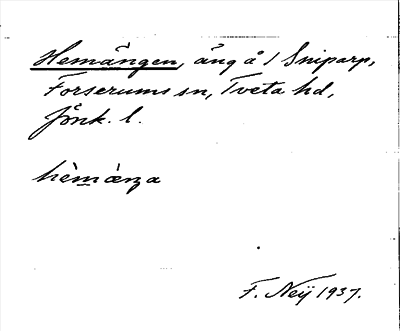 Hemängen, äng å 1 Sniparp,
Forserums sn, Tveta hd,
Jönk. l.
hèmæŋa
F. Neij 1937.